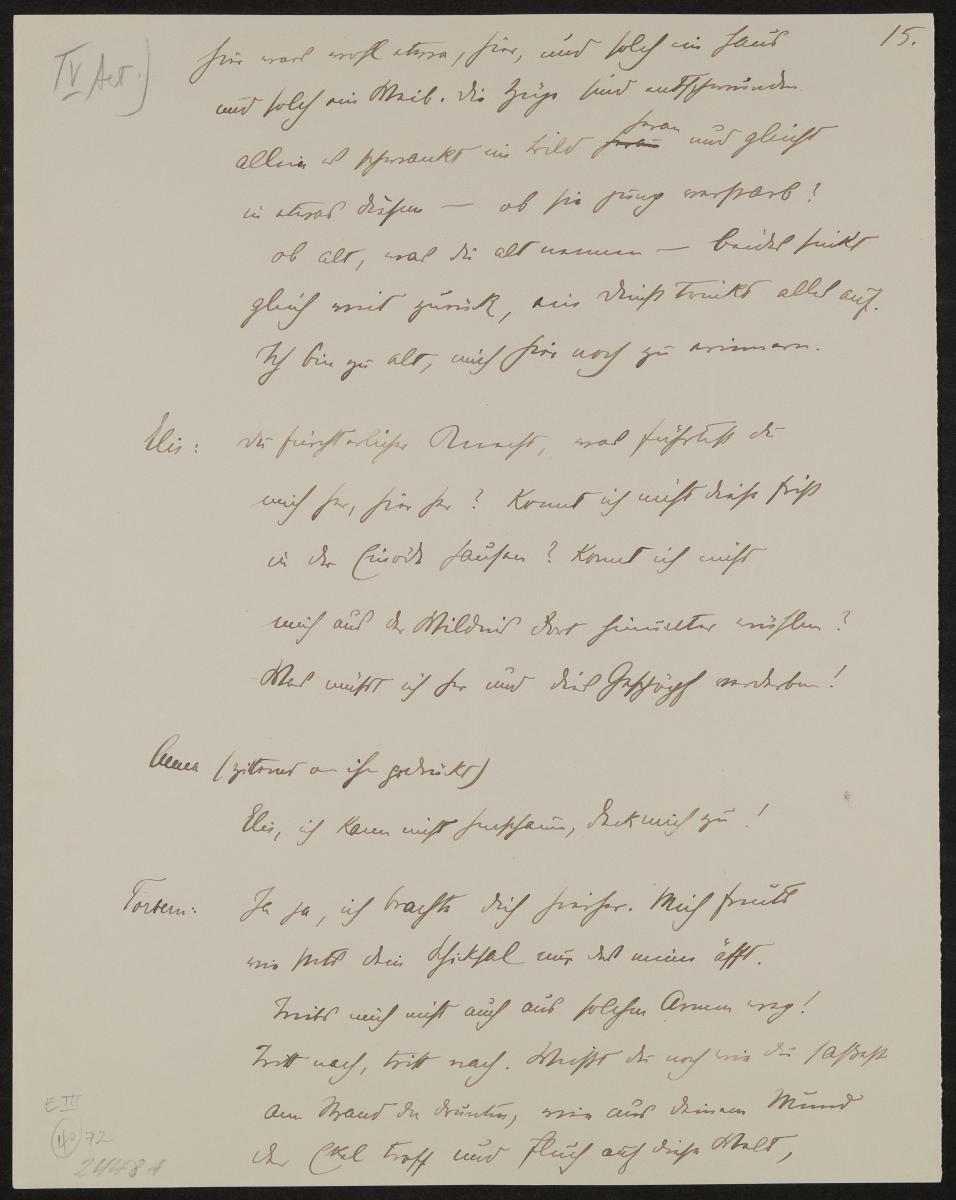 15.
IV Act.)
hier wars wohl etwa, hier, und solch ein Haus
und solch ein Weib. Die Züge sind entschwunden
allein es schwankt ein Bild heran und gleicht
in etwas diesem — ob sie jung verstarb?
ob alt, was die alt nennen — beides sinkt
gleich weit zurück, ein Dunst trinkt alles auf.
Ich bin zu alt, mich hier noch zu erinnern.
Elis: Du fürchterlicher Knecht, was führtest du
mich her, hier her? Konnt ich nicht diese Frist
in der Einöde hausen? Konnt ich nicht
mich aus der Wildnis dort hinunter wühlen?
Was mußt ich her und dies Geschöpf verderben!
Anna (zitternd an ihn gedrückt)
Elis, ich kann nicht hinschaun, deck mich zu!
Torbern: Ja ja, ich brachte dich hierher. Mich freuts
wie stets dein Schiksal nur das meine äfft.
Triebs mich nicht auch aus solchen Armen weg!
Tritt nach, tritt nach. Weißt du noch wie du saßest
am Strand da drunten, wie aus deinem Mund
der Ekel troff und Fluch auf diese Welt,
E III
(40) 72
24481